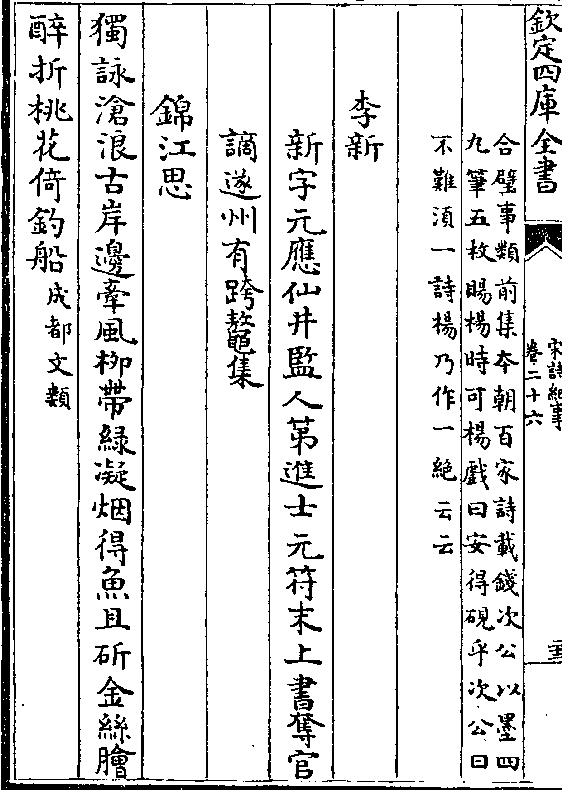 欽定四庫全書
宋詩紀事
卷二十六
合璧事類前集本朝百家詩載錢次公以墨四
九筆五枚賜楊時可楊戲曰安得硯乎次公曰
不難湏一詩楊乃作一絕云云
李新
新字元應仙井監人第進士元符末上書奪官
謫遂州有跨鼇集
錦江思
獨詠滄浪古岸邊牽風柳帶綠凝烟得魚且斫金絲膾
醉折桃花倚釣船成都文類